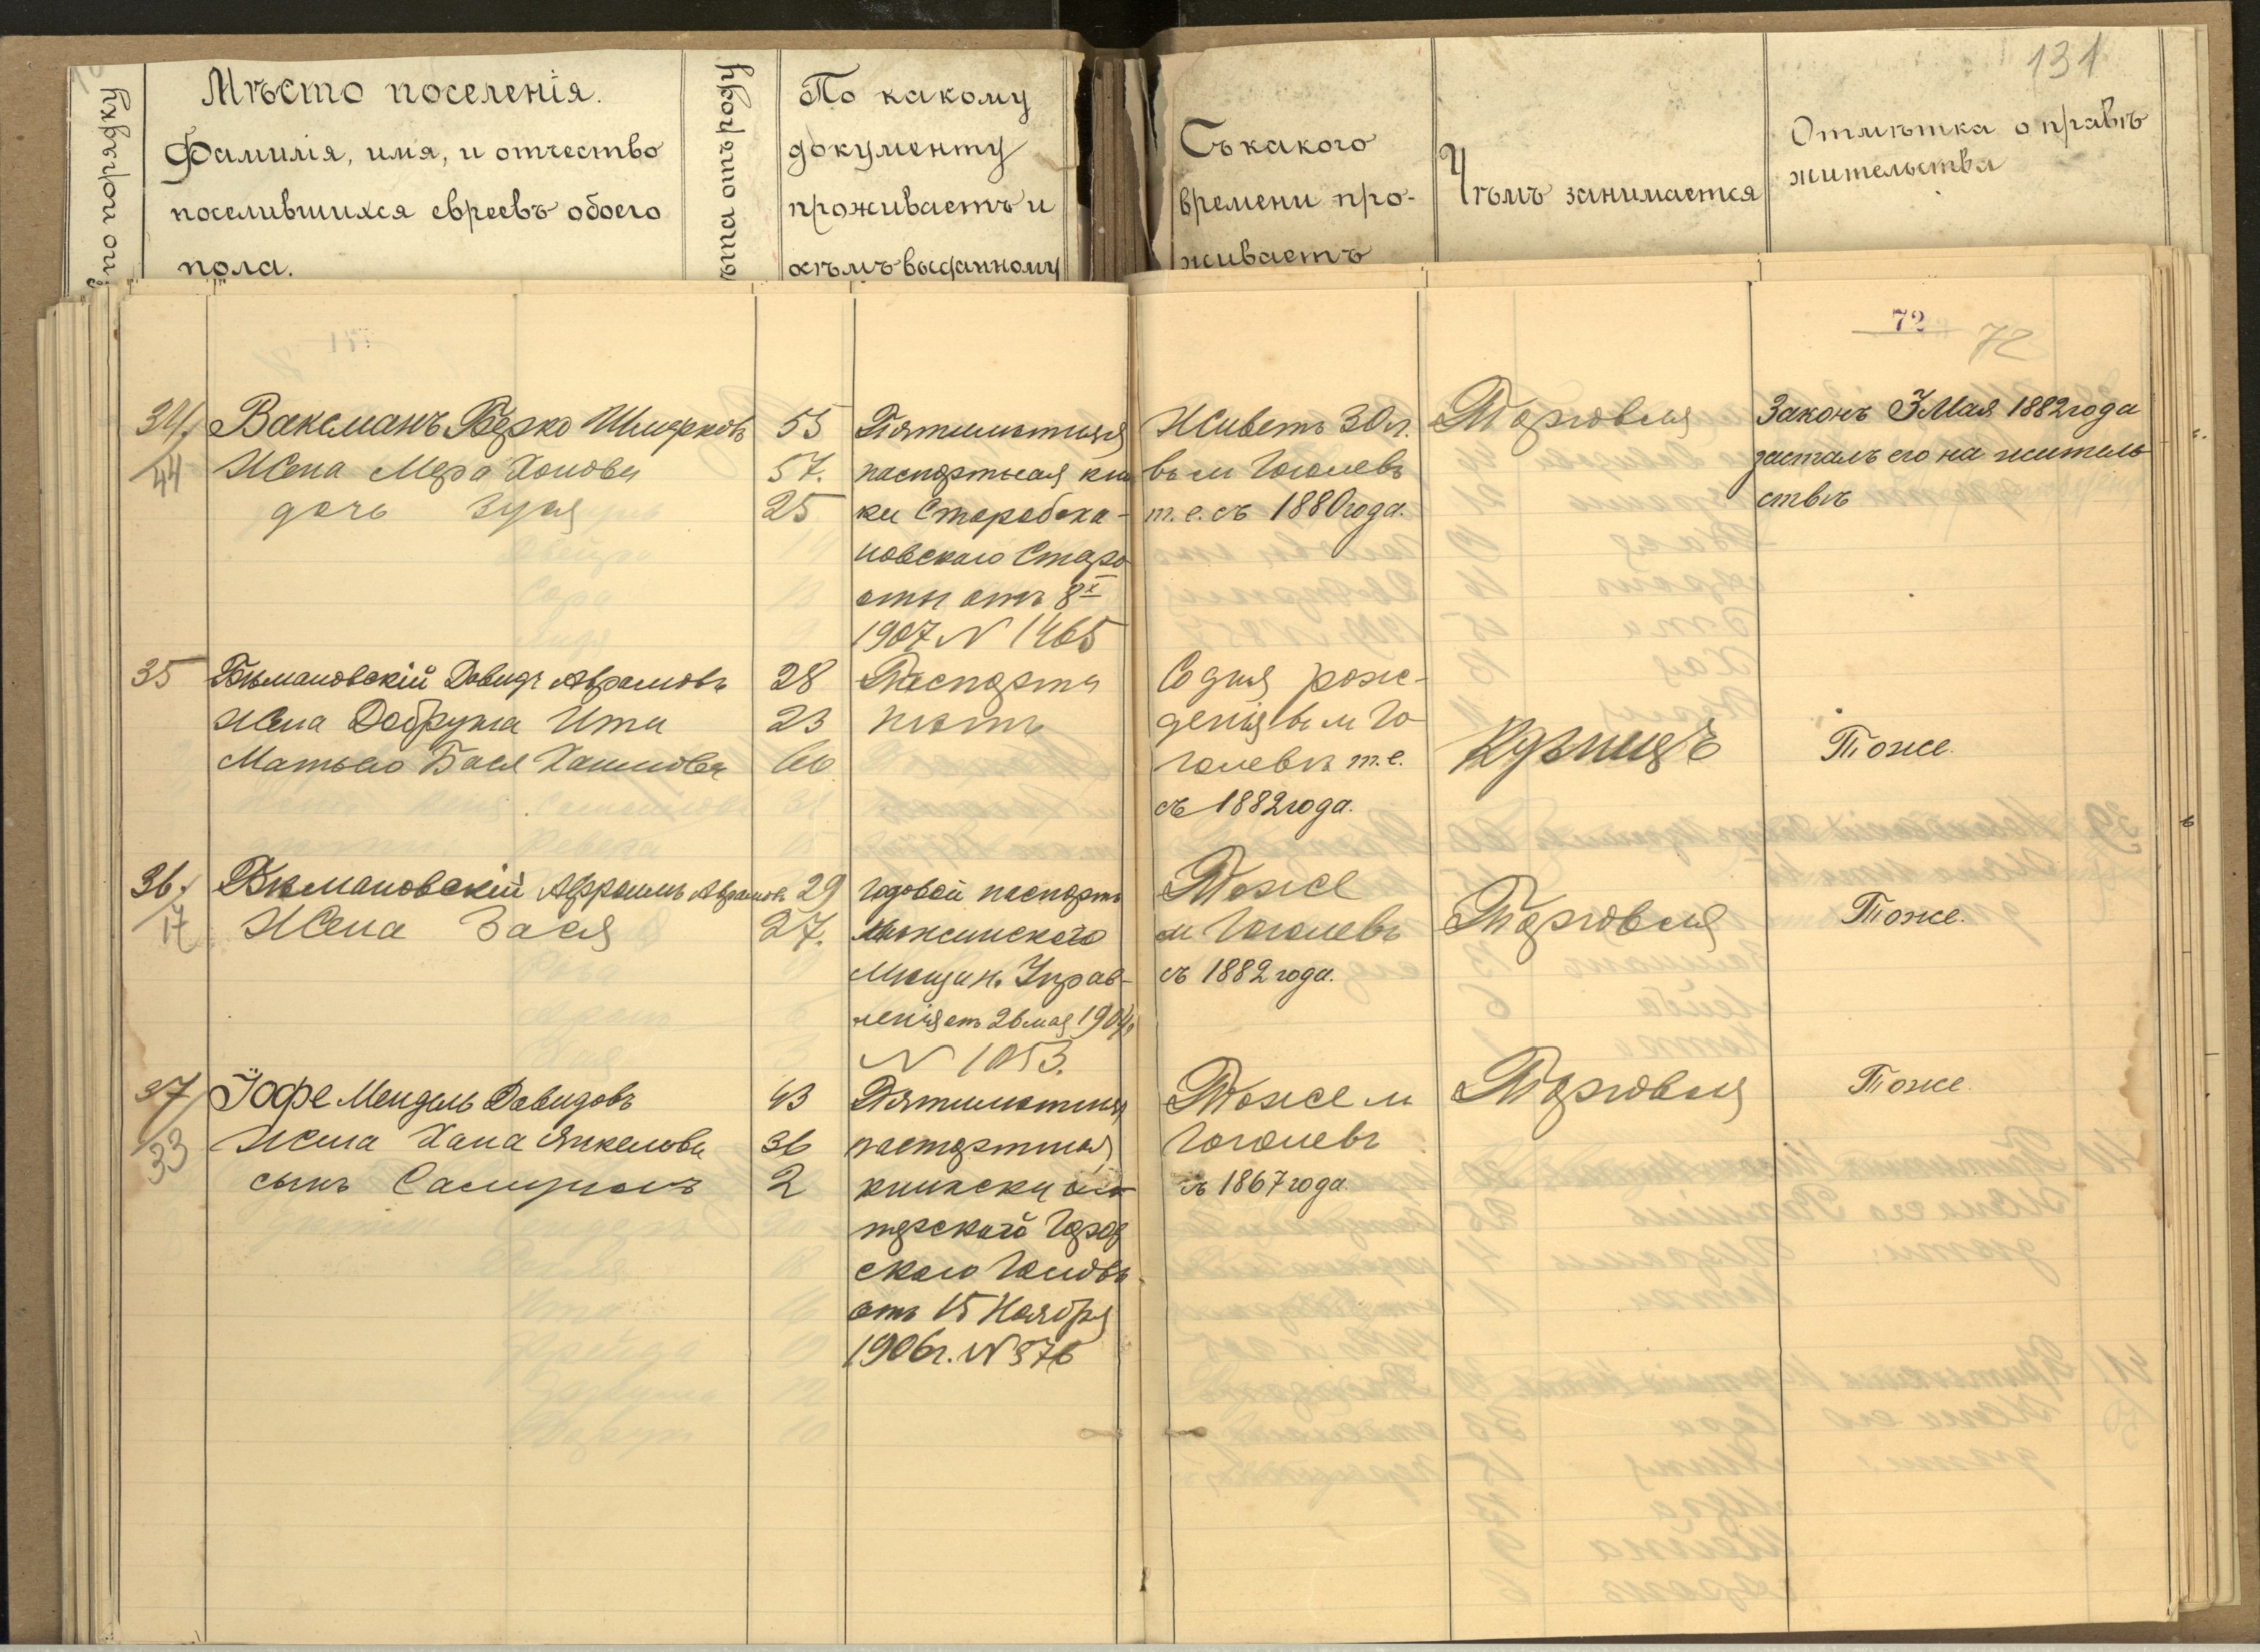 131
по порядку
Мѣсто поселенія.
Фамилія, имя, и отчество
поселившихся евреевъ обоего
пола.
ѣта отъ роду
По какому
документу
проживаетъ и
кѣмъ выданному
Съ какого
времени про-
живаетъ
Чѣмъ занимается
Отмѣтка о правѣ
жительства
72
72
34.
44
Ваксманъ Берко Шмерковъ 55
Жена Мера Хонова 57.
дочь Зуся 25
Пятилѣтняя
паспортная кни
ки Старобеха-
новскаго Старо
сты отъ 8 X
1907 N 1465
Живетъ 30 л.
въ м Гоголевъ
т. е. съ 1880 года.
Торговля
Законъ 3 Мая 1882 года
засталъ его на житель
ствѣ
35
Давидъ Аврамовъ 28
Жена Добруша Ита 23
Мать его Бася 66
Паспорта
нѣтъ
Со дня рож-
денія въ м Го
голевѣ т. е.
съ 1882 года.
Тоже.
36.
17
Аврамов 29
Жена Бася 27.
годовой паспортъ
Мещан. Управ-
ленія отъ 26 мая 1904
N 1053.
Тоже
м Гоголевъ
съ 1882 года.
Торговля
Тоже.
37
33
Іофе Мендель Давидовъ 43
Жена Хана Янкелова 36
сынъ Самуилъ 2
Пятилѣтняя
паспортная
книжки
терскаго Город
скаго Головы
отъ 15 Ноября
1906 г. N 376
Тоже м
Гоголевъ
съ 1867 года.
Торговля
Тоже.